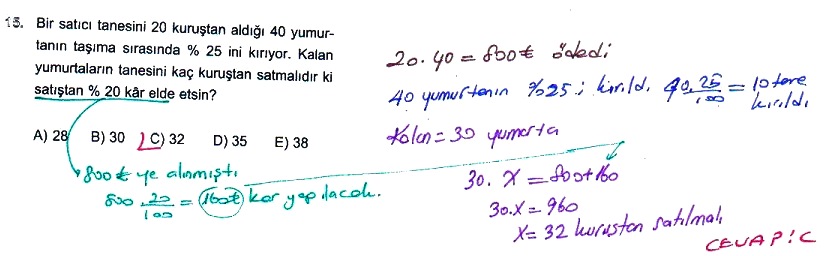 15. Bir satıcı tanesini 20 kuruştan aldığı 40 yumur-
tanın taşıma sırasında % 25 ini kırıyor. Kalan
yumurtaların tanesini kaç kuruştan satmalıdır ki
satıştan % 20 kâr elde etsin?
A) 28 B) 30 C) 32 D) 35 E) 38
20. 40 = 800₺ ödedi
40 yumurtanın %25 i kırıldı. 40.25/100 = 10 tane kırıldı
Kalan = 30 yumurta
800₺ ye alınmıştı
800 . 20/100 = 160₺ kar yapılacak.
30. X = 800+160
30.X = 960
X = 32 kuruştan satılmalı
CEVAP: C